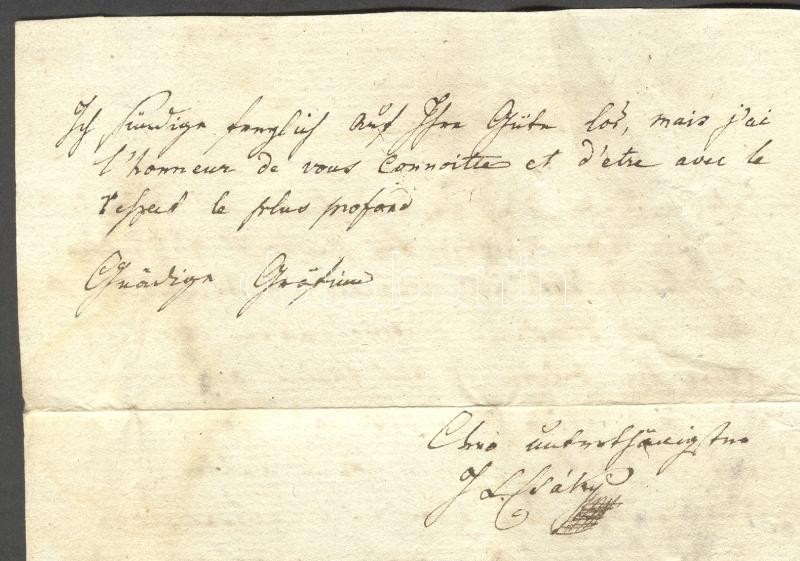 Ich sündige freylich auf Ihre Güte los, mais j'ai
l'honneur de vous Connoitre et d'etre avec le
respect le plus profond
Gnädige Gräfinn
Dero unterthänigster
J L. Csáky